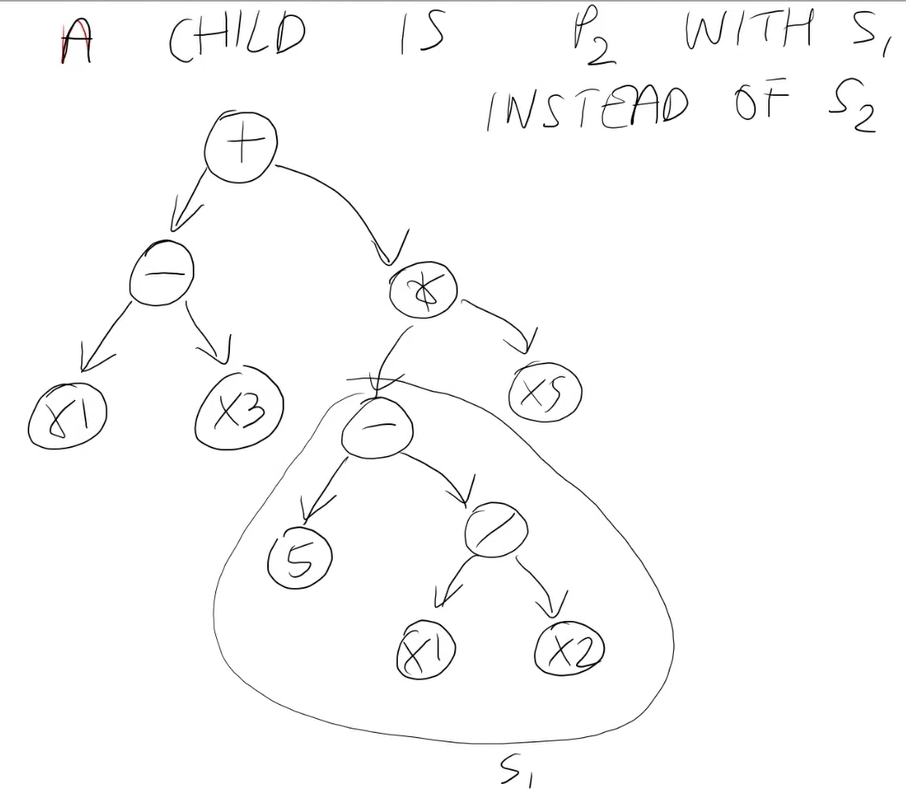 A CHILD IS P2 WITH S1
INSTEAD OF S2
+
−
*
X1
X3
−
X5
5
/
X1
X2
S1